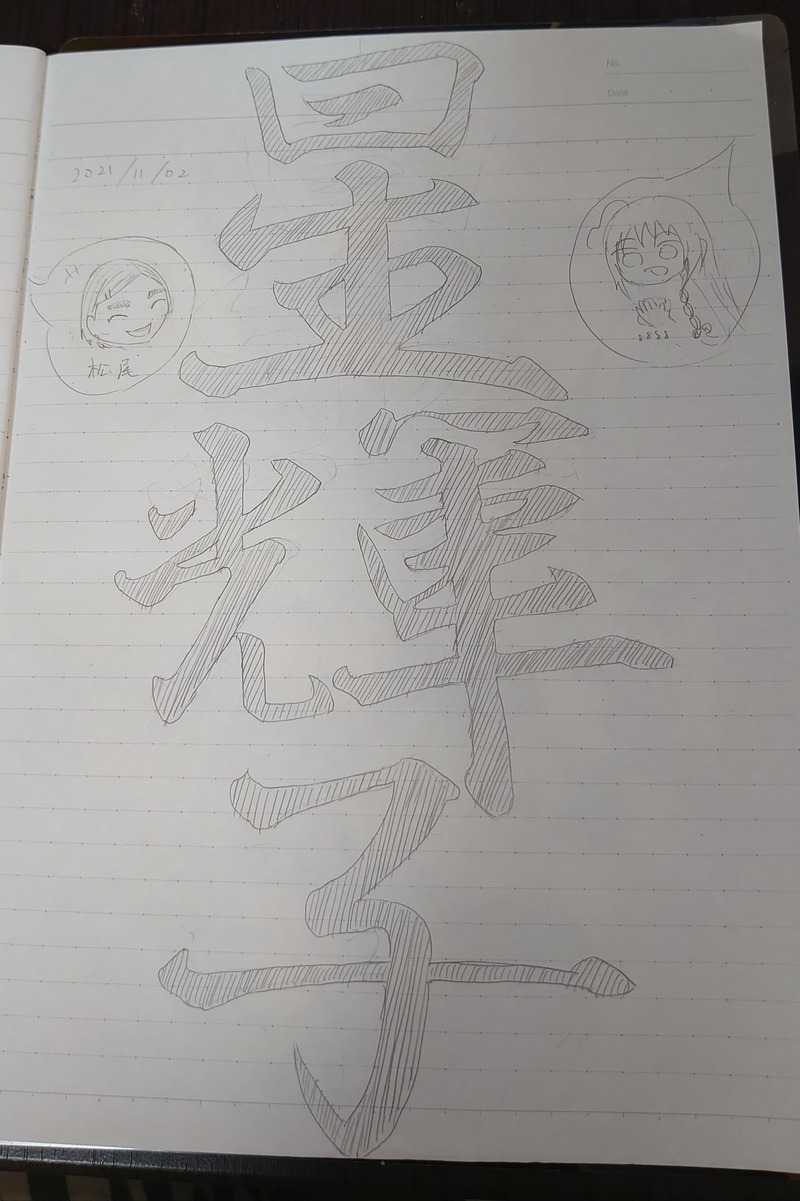 No.
Date
2021/11/02
星
輝
子
松尾